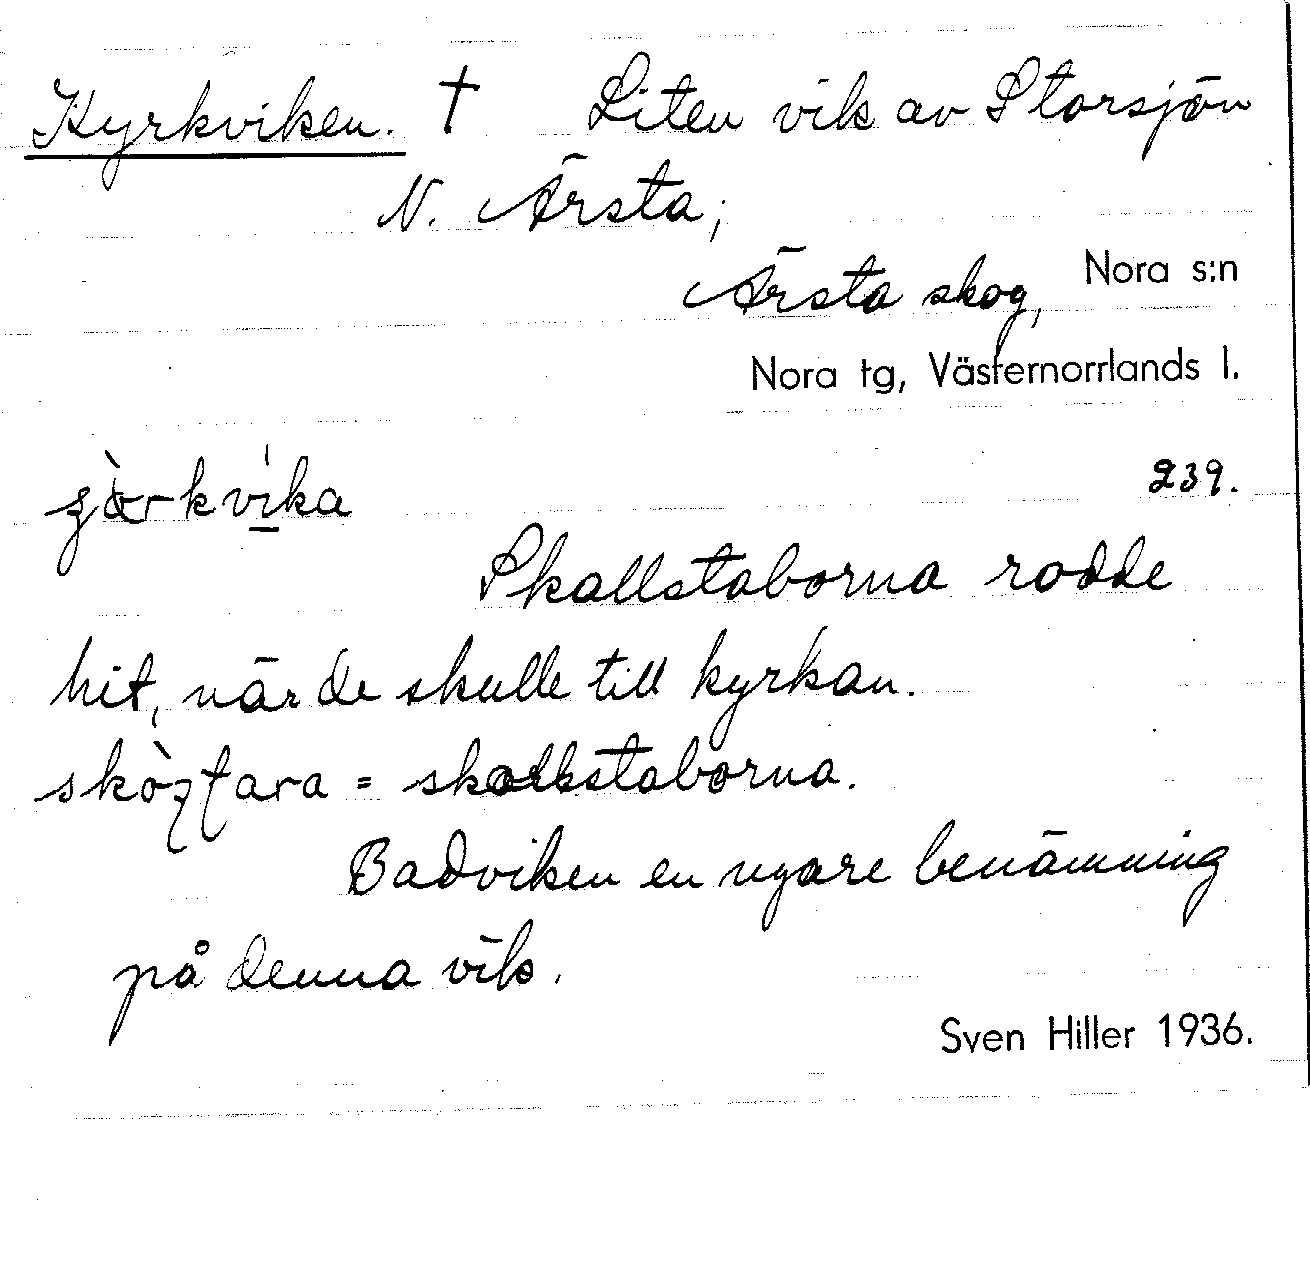 Kyrkviken. † Liten vik av Storsjön
N. Ärsta;
Ärsta skog, Nora s:n
Nora tg, Västernorrlands l.
239.
Skallstaborna rodde
hit, när de skulle till kyrkan.
= skallstaborna.
Badviken en nyare benämning
på denna vik.
Sven Hiller 1936.